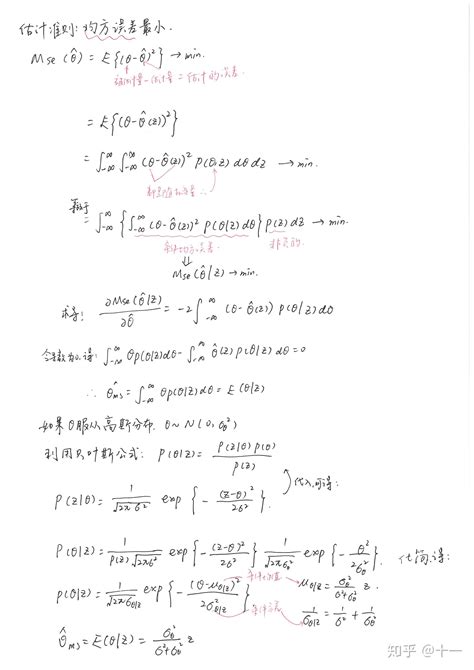 估计准则: 均方误差最小.
Mse(θ̂) = E{(θ-θ̂)²} → min.
被估计量-估计量 = 估计的误差.
= E{(θ-θ̂(z))²}
= ∫_{-∞}^{∞} ∫_{-∞}^{∞} (θ-θ̂(z))² P(θ,z) dθ dz → min.
等价于
= ∫_{-∞}^{∞} {∫_{-∞}^{∞} (θ-θ̂(z))² P(θ|z) dθ} P(z) dz → min.
条件均方误差. 非负的.
⇓
Mse(θ̂|z) → min.
求导: ∂Mse(θ̂|z)/∂θ̂ = -2∫_{-∞}^{∞} (θ-θ̂(z)) P(θ|z) dθ
令导数为0.得: ∫_{-∞}^{∞} θp(θ|z)dθ - ∫_{-∞}^{∞} θ̂(z) P(θ|z) dθ = 0
∴ θ̂ms = ∫_{-∞}^{∞} θp(θ|z)dθ = E(θ|z)
如果θ服从高斯分布. θ~N(0, σθ²)
利用贝叶斯公式: P(θ|z) = P(z|θ)P(θ)/P(z)
代入,可得:
P(z|θ) = 1/√(2πσ²) exp{-(z-θ)²/2σ²}.
P(θ|z) = 1/(P(z)√(2πσ²)) exp{-(z-θ)²/2σ²} 1/√(2πσθ²) exp{-θ²/2σθ²}. 化简.得:
p(θ|z) = 1/√(2πσ²θ|z) exp{-(θ-μθ|z)²/2σ²θ|z} 条件均值 μθ|z = σθ²/(σ²+σθ²) z.
条件方差 1/σθ|z = 1/σ² + 1/σθ²
θ̂ms = E(θ|z) = σθ²/(σ²+σθ²) z
知乎 @十一